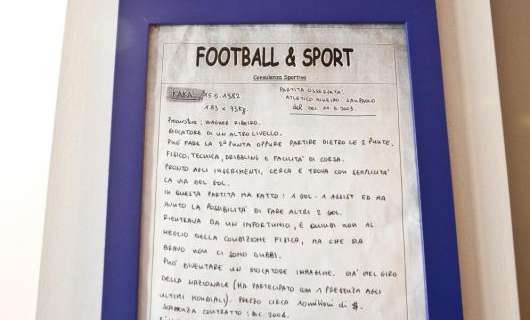 FOOTBALL & SPORT
Consulenza Sportiva
KAKA 15.5.1982 PARTITA OSSERVATA:
1.83 x 73kg. ATLETICO MINEIRO - SAN PAOLO
DEL 2003
PROCURATORE: WAGNER RIBEIRO.
GIOCATORE DI UN ALTRO LIVELLO.
PUÒ FARE LA 2ª PUNTA OPPURE PARTIRE DIETRO LE 2 PUNTE.
FISICO, TECNICA, DRIBBLING E FACILITÀ DI CORSA.
PRONTO AGLI INSERIMENTI, CERCA E TROVA CON SEMPLICITÀ
LA VIA DEL GOL.
IN QUESTA PARTITA HA FATTO: 1 GOL - 1 ASSIST ED HA
AVUTO LA POSSIBILITÀ DI FARE ALTRI 2 GOL.
RIENTRAVA DA UN INFORTUNIO, E QUINDI NON AL
MEGLIO DELLA CONDIZIONE FISICA, MA CHE SIA
BRAVO NON CI SONO DUBBI.
PUÒ DIVENTARE UN GIOCATORE IMMAGINE. GIÀ NEL GIRO
DELLA NAZIONALE (HA PARTECIPATO CON 1 PRESENZA AGLI
ULTIMI MONDIALI). PREZZO CIRCA 10 MILIONI DI $.
SCADENZA CONTRATTO: DIC. 2004.